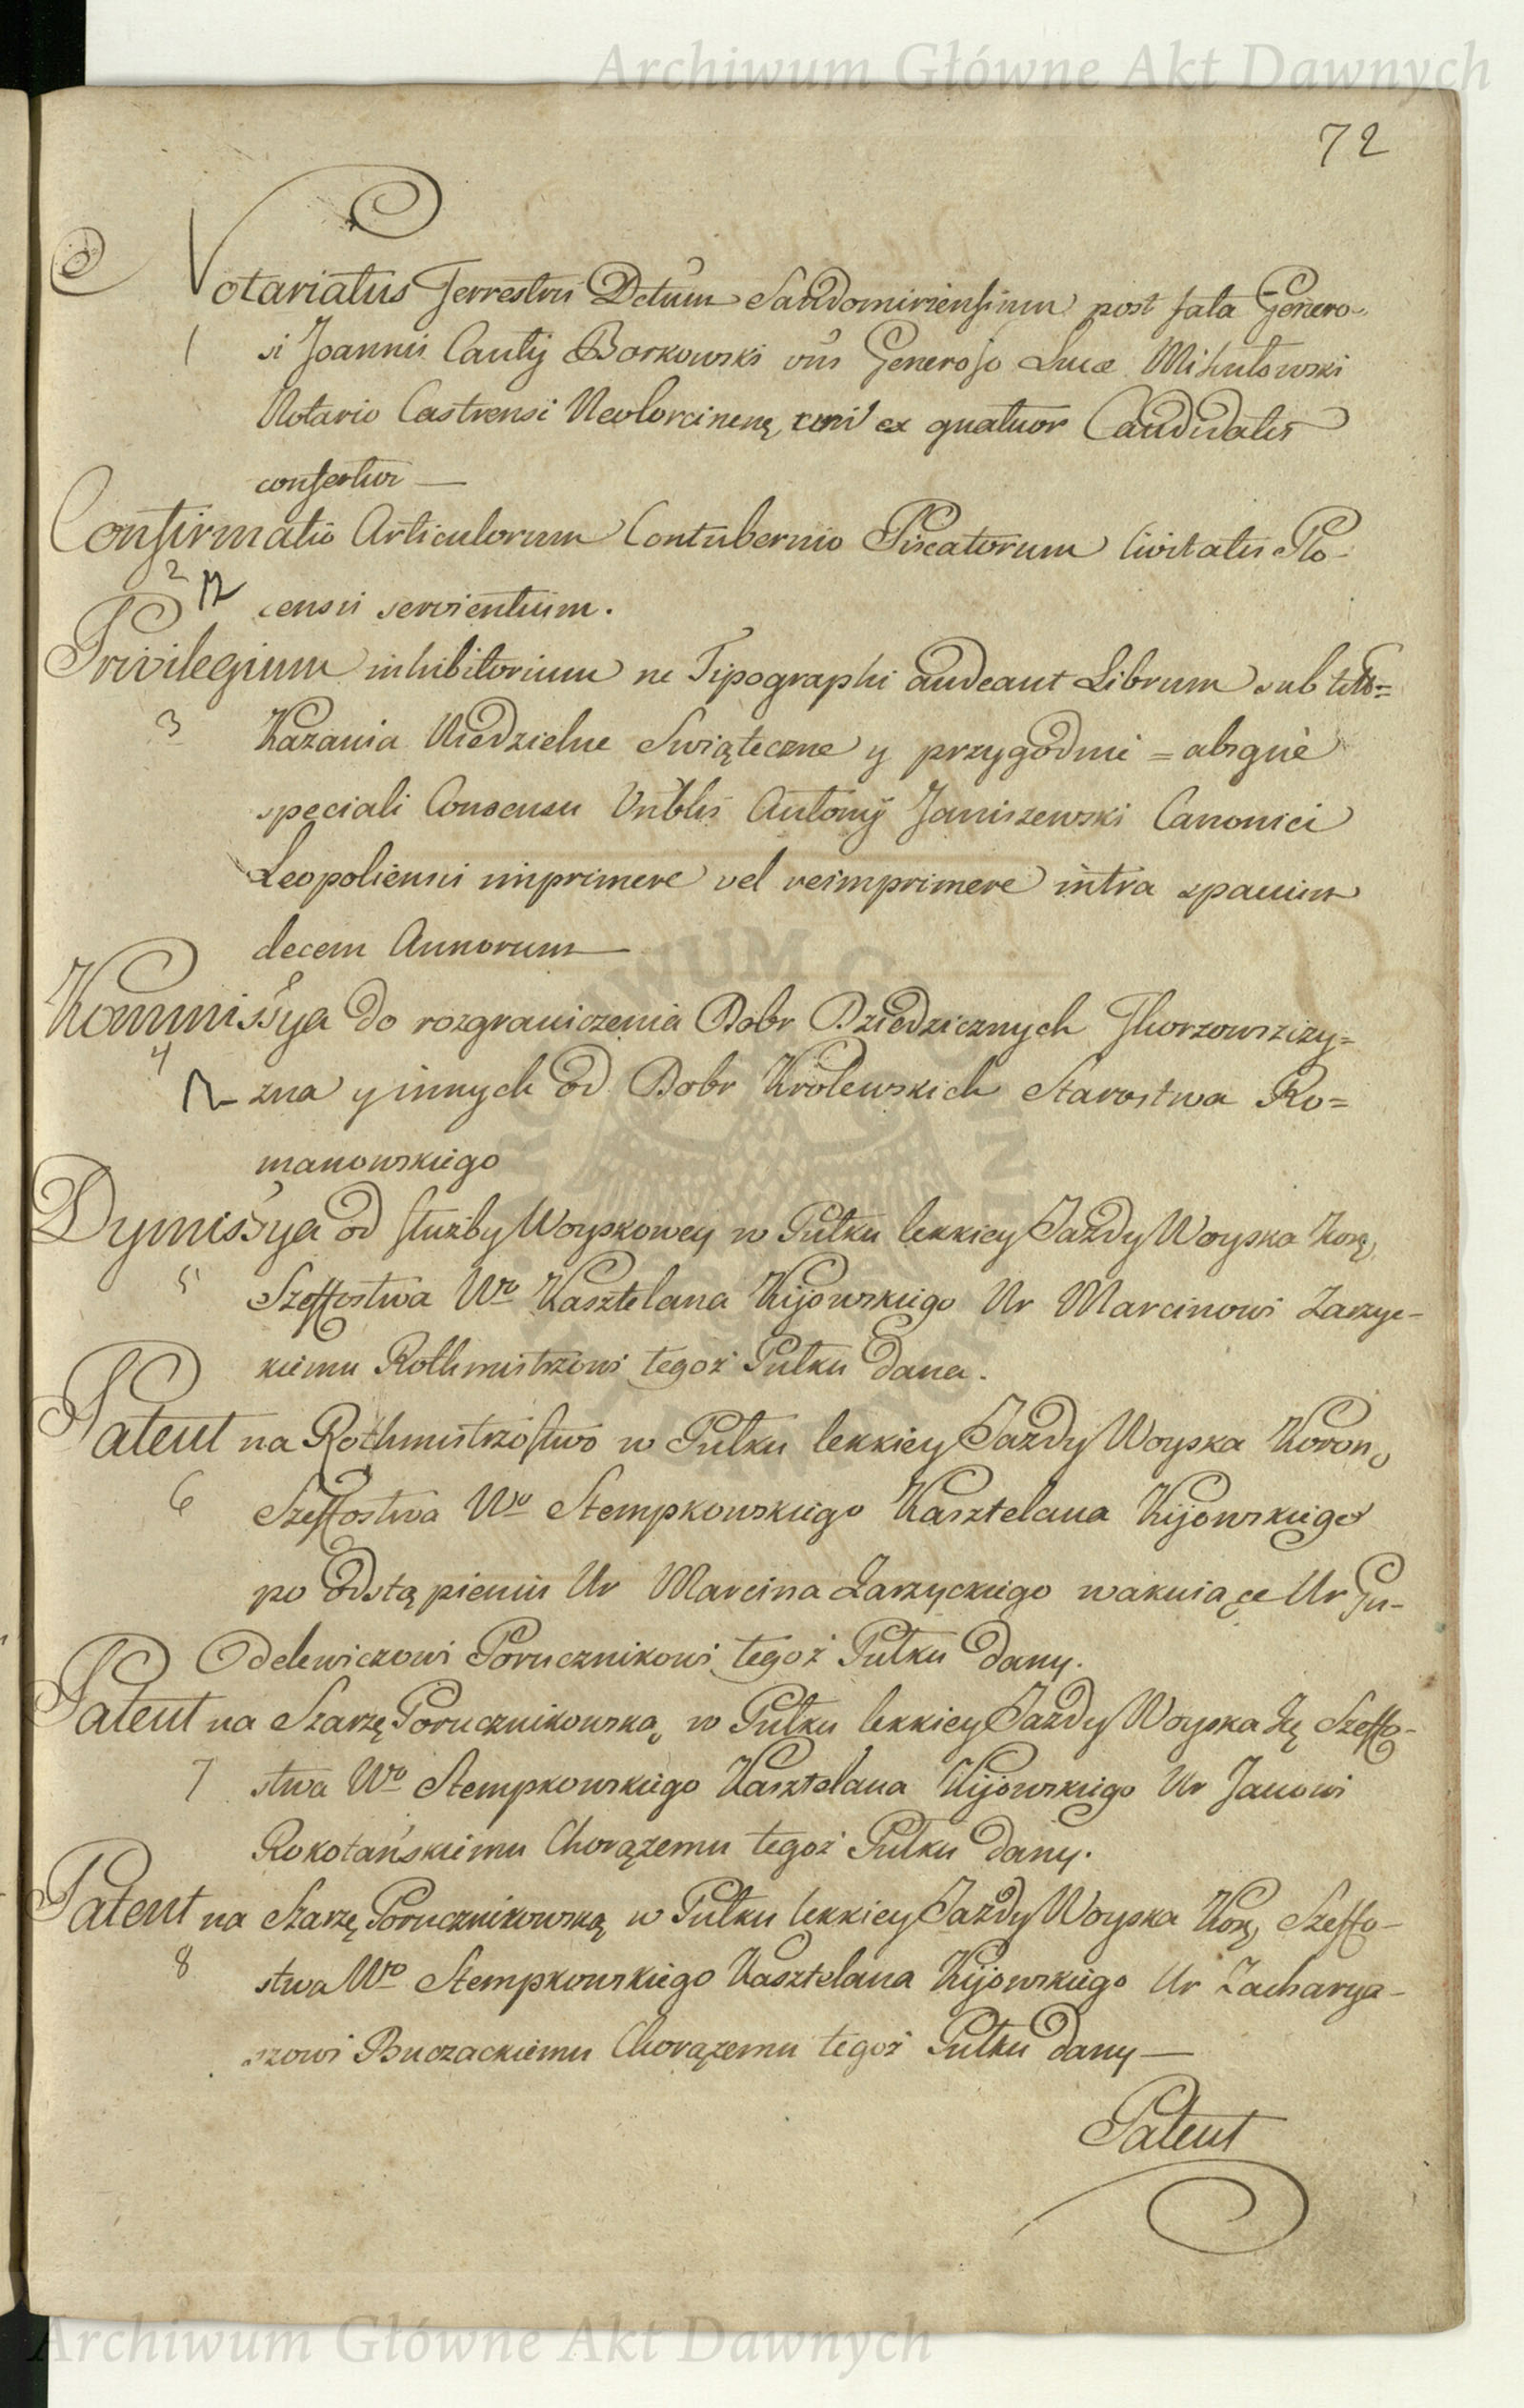 Archiwum Główne Akt Dawnych
72
Notariatus Terrestris Dctum Sandomiriensium post fata Genero-
1 si Joannis Cantij Borkowski vūs Generoso Lucæ
Notario Castrensi ex quatuor Candidatis
confertur —
Confirmatio Articulorum Contubernio Piscatorum Civitatis Plo-
2 censis servientium.
Privilegium inhibitorium ne Tipographi audeant Librum sub titt=
3 Kazania Niedzielne Swiąteczne y przygodmi = absque
speciali Consensu Vnblis Antonij Janiszewski Canonici
Leopoliensis imprimere vel reimprimere intra spatium
decem Annorum —
Kommissya do rozgraniczenia Dobr Dziedzicznych
4 zna y innych od Dobr Królewskich Starostwa Ro=
manowskiego
Dymissya od służby Woyskowey w Pułku lekkiey Jazdy Woyska Korą,
5 Szeffostwa Wo Kasztelana Kijowskiego Ur Marcinowi Zarzyc-
kiemu Rothmistrzowi tegoż Pułku dana.
Patent na Rothmistrzostwo w Pułku lekkiey Jazdy Woyska Koron,
6 Szeffostwa Wo Stempkowskiego Kasztelana Kijowskiego
po Odstąpieniu Ur Marcina Zarzyckiego wakuiące Ur Gu-
delewiczowi Porucznikowi tegoż Pułku dany.
Patent na Szarzę Porucznikowską w Pułku lekkiey Jazdy Woyska Szeffo-
7 stwa Wo Stempkowskiego Kasztelana Kijowskiego Ur Janowi
Rokotańskiemu Chorążemu tegoż Pułku dany.
Patent na Szarzę Porucznikowską w Pułku lekkiey Jazdy Woyska Korą, Szeffo-
8 stwa Wo Stempkowskiego Kasztelana Kijowskiego Ur Zacharya-
szowi Buczackiemu Chorążemu tegoż Pułku dany —
Patent
Archiwum Główne Akt Dawnych